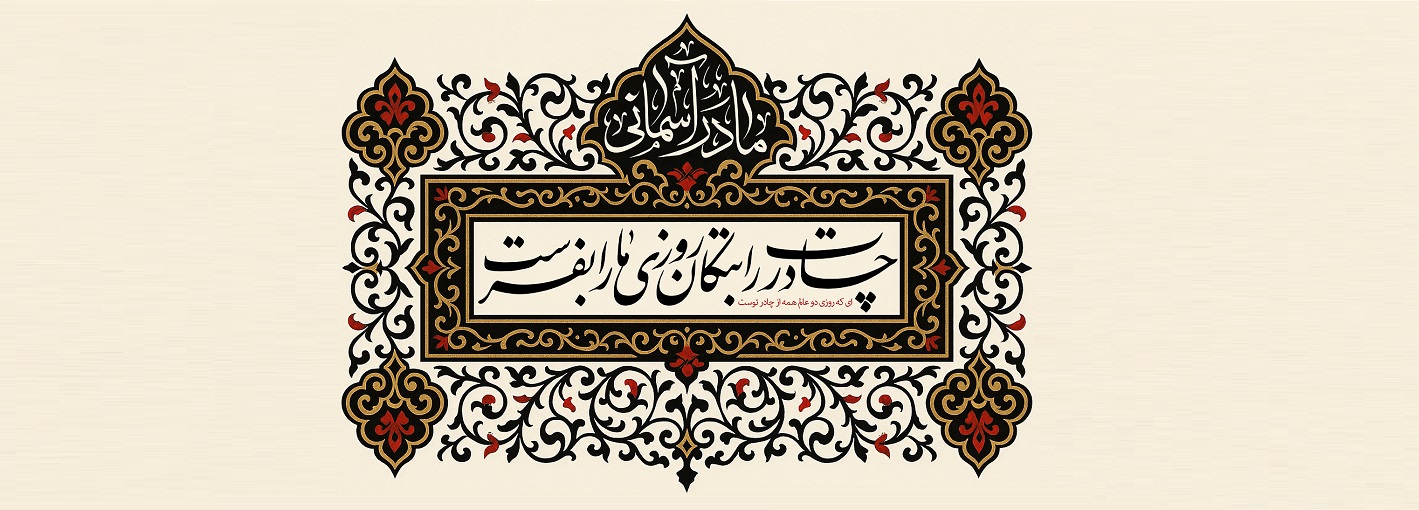 مادر آسمانی
چادرت را بتکان روزی ما را بفرست
ای که روزی دو عالم همه از چادر توست